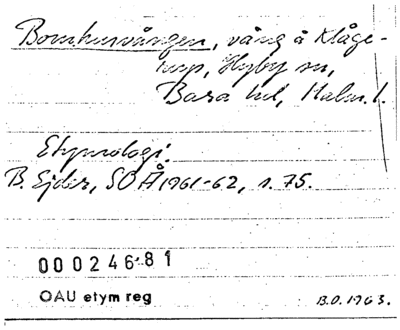 Bomhusvången, vång å Klåge-
rup, Hyby sn,
Bara hd, Malm. l.
Etymologi:
B. Ejder, SOÅ 1961-62, s. 75.
000246 81
OAU etym reg
B.O. 1963.